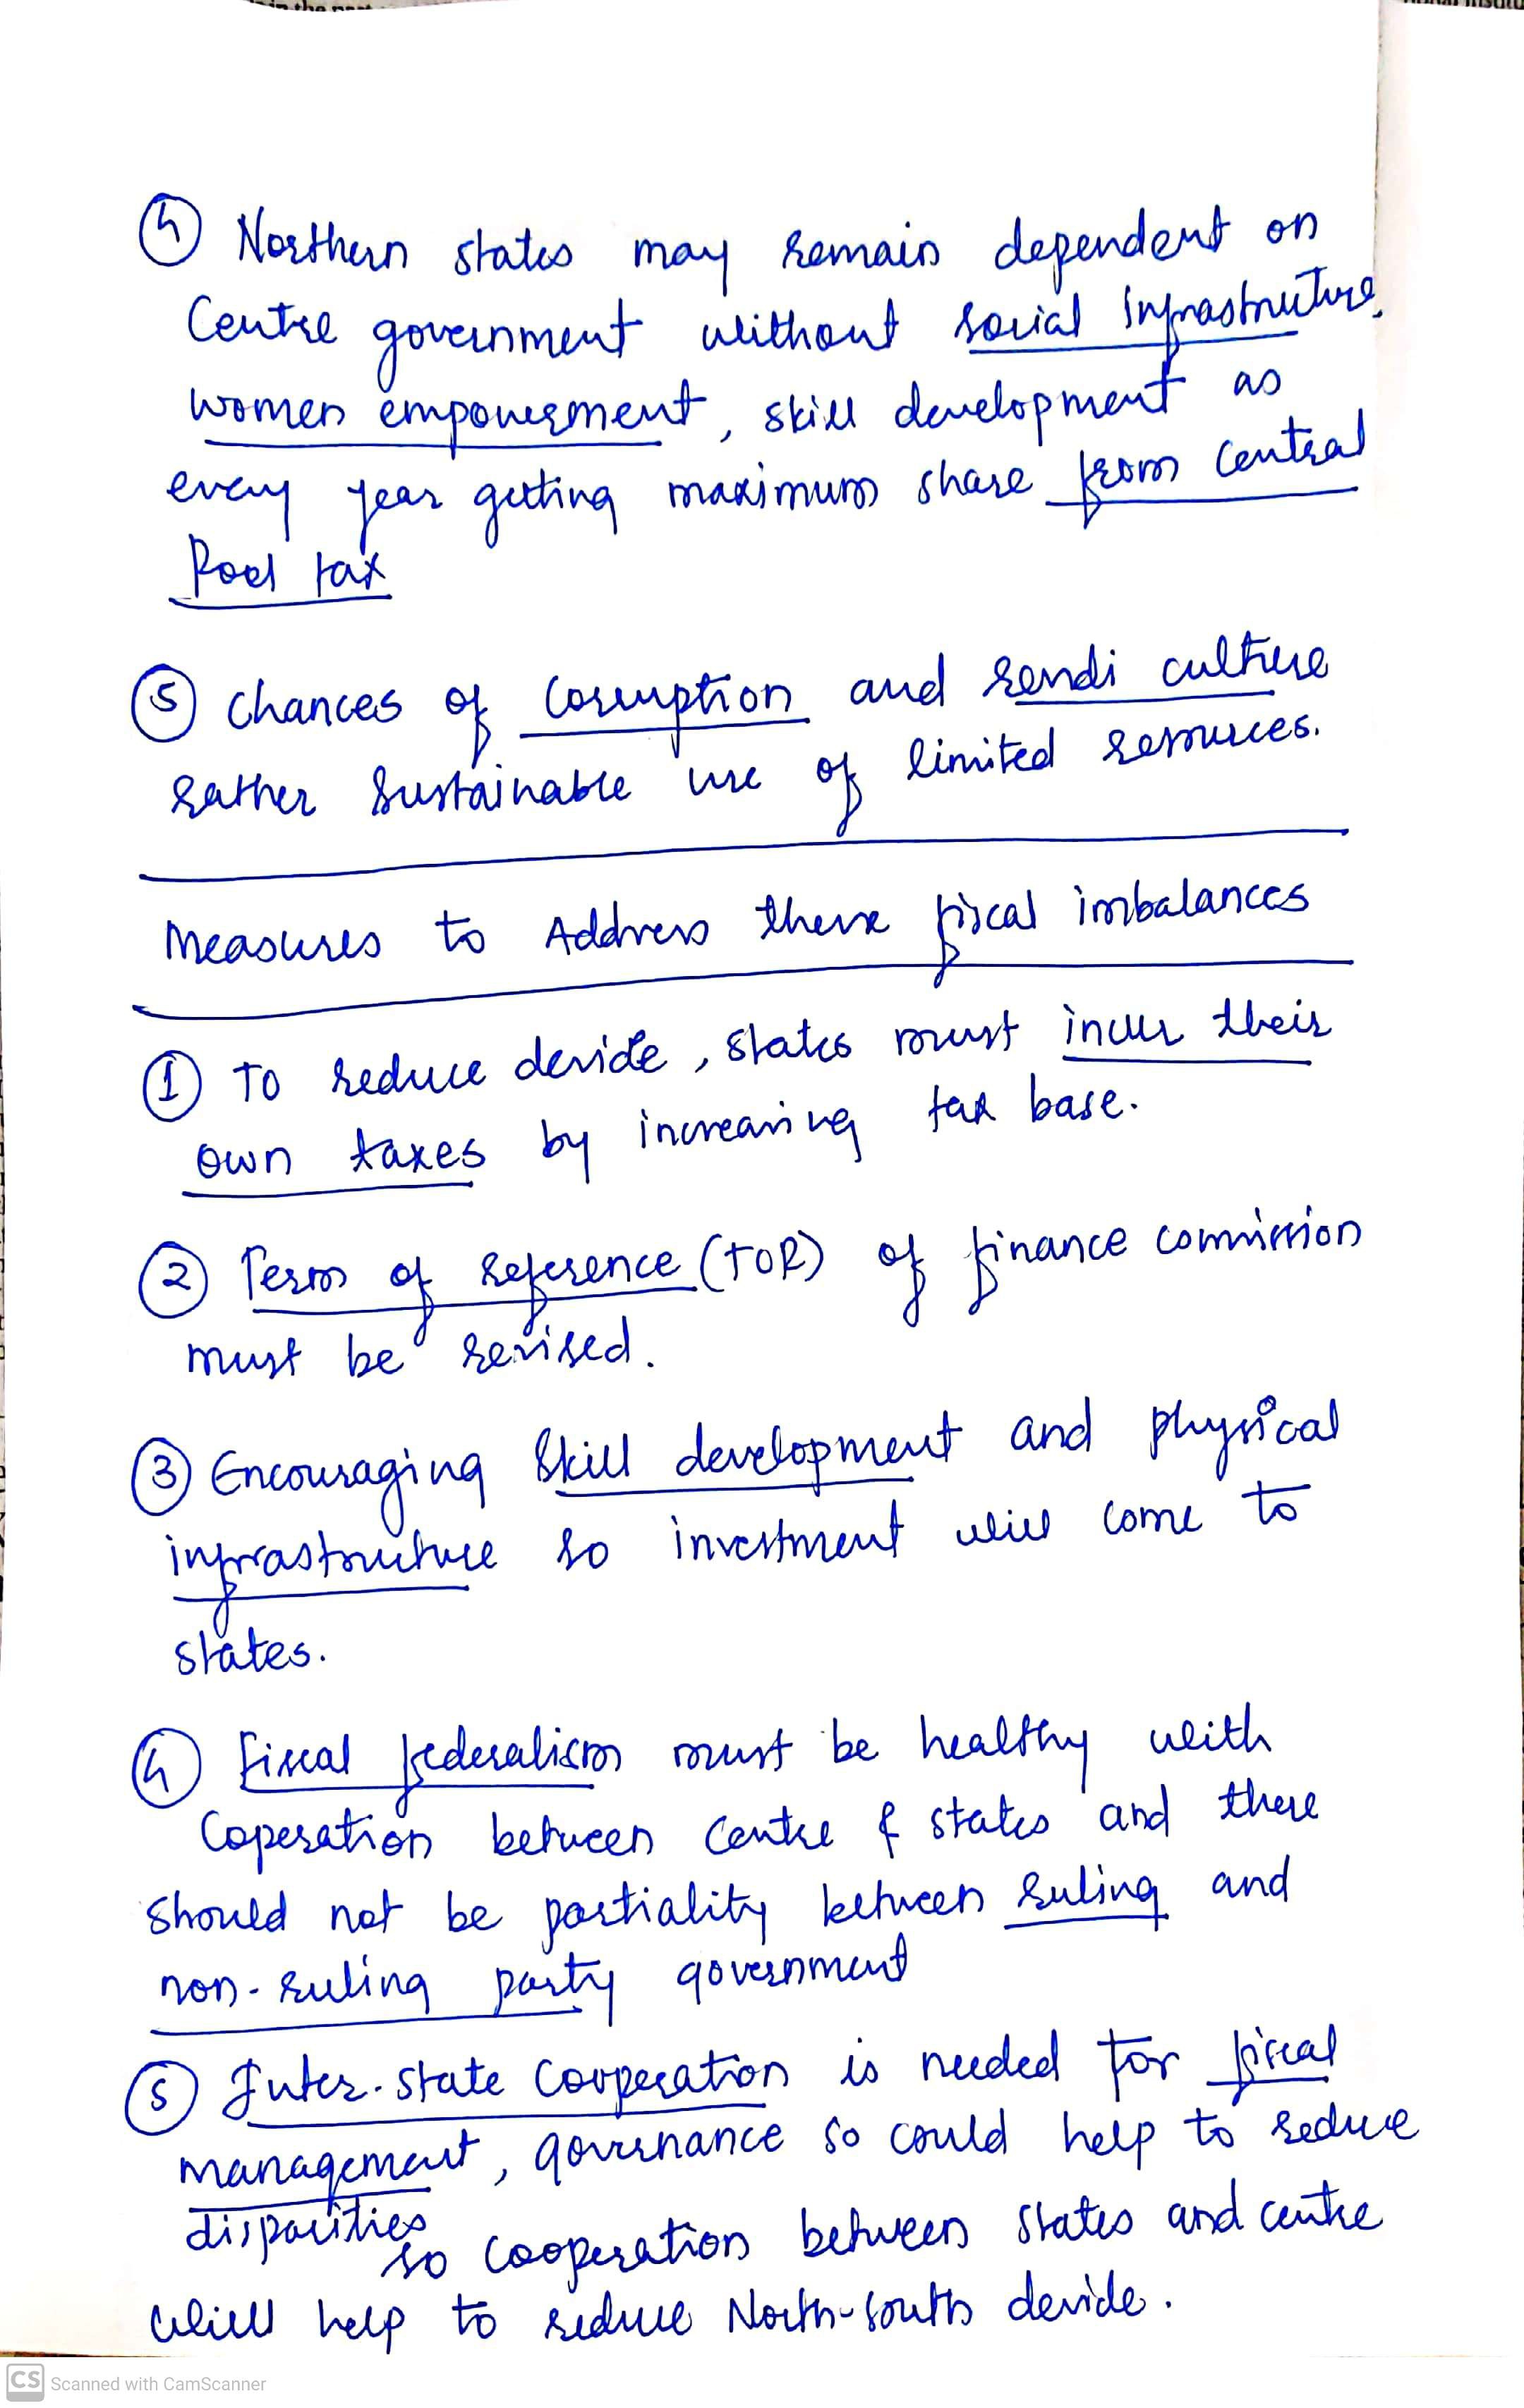 ④ Northern states may remain dependent on
Centre government without social infrastructure,
women empowerment, skill development as
every year getting maximum share from central
Pool tax
⑤ chances of corruption and rendi culture
rather sustainable use of limited resources.
Measures to Address these fiscal imbalances
① To reduce devide, states must incur their
own taxes by increasing tax base.
② Terms of reference (TOR) of finance commission
must be revised.
③ Encouraging skill development and physical
infrastructure so investment will come to
states.
④ Fiscal federalism must be healthy with
Coperation between centre & states and there
should not be partiality between ruling and
non-ruling party government
⑤ Inter-state cooperation is needed for fiscal
management, governance so could help to reduce
disparities
so cooperation between states and centre
will help to reduce North-south devide.
CS Scanned with CamScanner